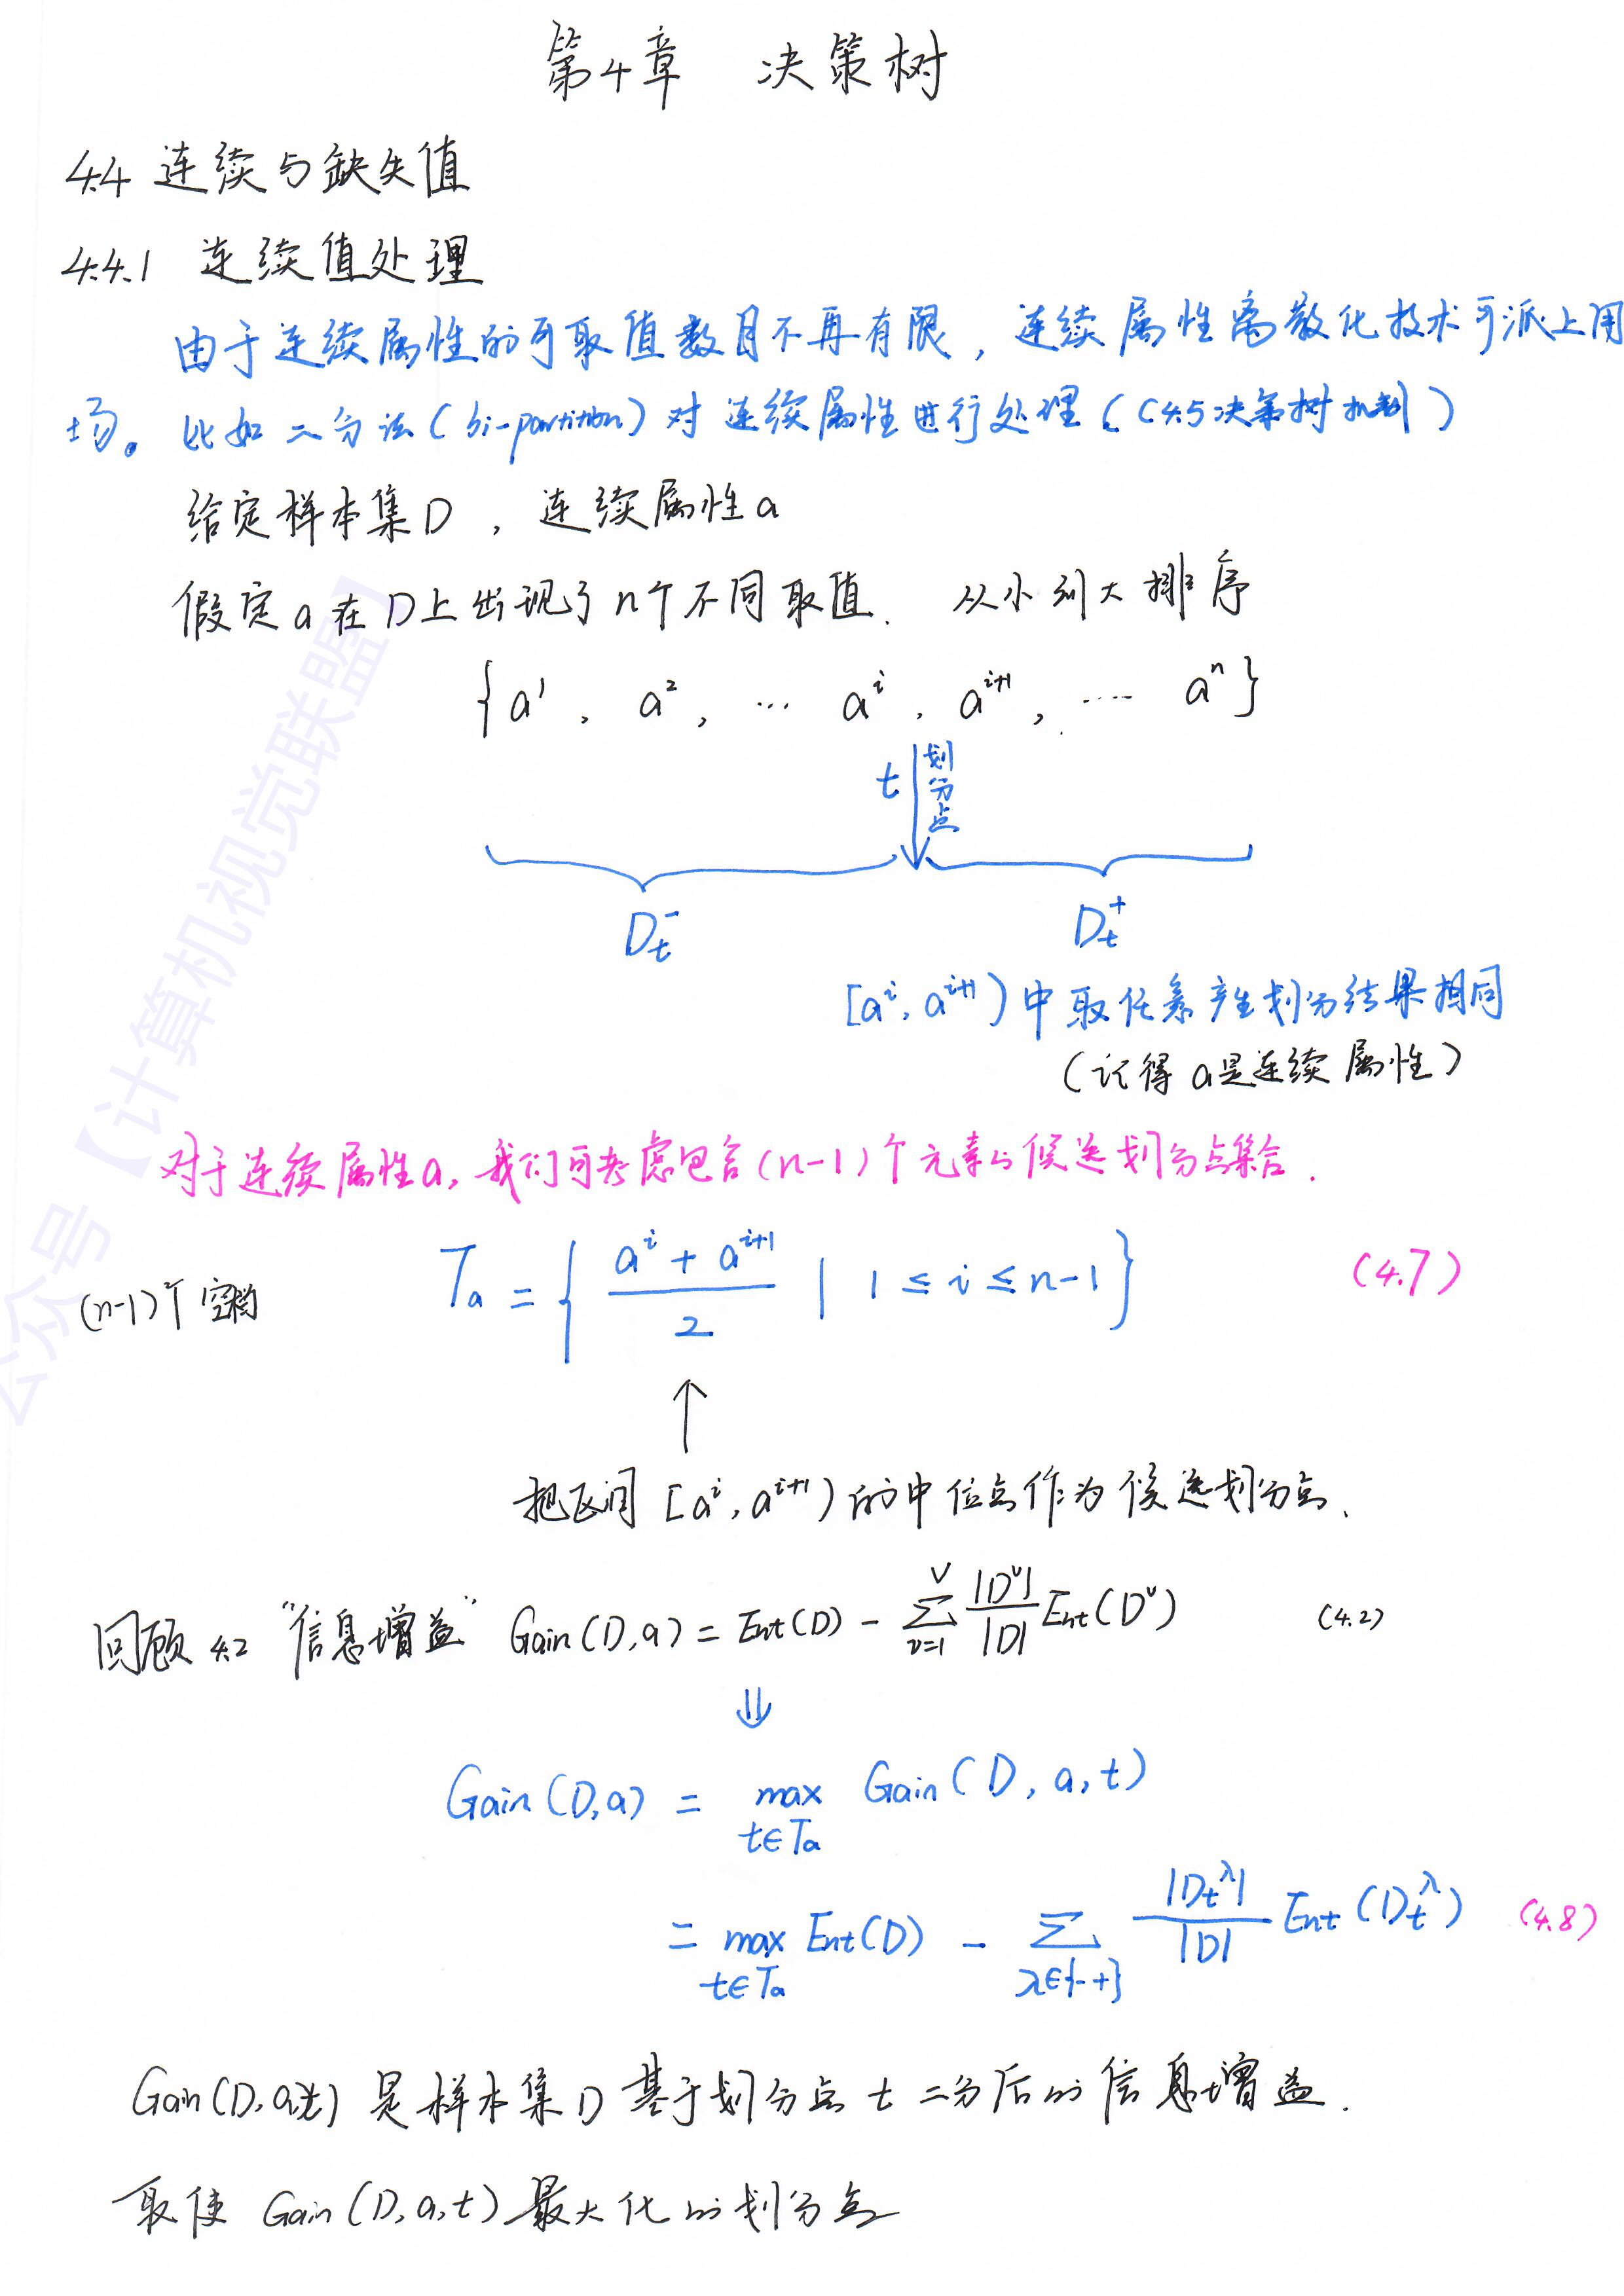 第4章 决策树
4.4 连续与缺失值
4.4.1 连续值处理
由于连续属性的可取值数目不再有限，连续属性离散化技术可派上用
场。比如二分法(bi-partition)对连续属性进行处理(C4.5决策树机制)
给定样本集D，连续属性a
假定a在D上出现了n个不同取值. 从小到大排序
{a¹, a², … aⁱ, aⁱ⁺¹, …… aⁿ}
t 划分点
Dₜ⁻ Dₜ⁺
[aⁱ, aⁱ⁺¹)中取任意产生划分结果相同
(记得a是连续属性)
对于连续属性a, 我们可考虑包含(n-1)个元素的候选划分点集合.
(n-1)个空档 Tₐ = { (aⁱ + aⁱ⁺¹)/2 | 1 ≤ i ≤ n-1 } (4.7)
↑
把区间[aⁱ, aⁱ⁺¹)的中位点作为候选划分点、
回顾4.2 "信息增益" Gain(D,a) = Ent(D) - ∑_{v=1}^{V} |Dᵛ|/|D| Ent(Dᵛ) (4.2)
⇓
Gain(D,a) = max_{t∈Tₐ} Gain(D, a, t)
= max_{t∈Tₐ} Ent(D) - ∑_{λ∈{- +}} |Dₜ^λ|/|D| Ent(Dₜ^λ) (4.8)
Gain(D,a,t) 是样本集D基于划分点t二分后的信息增益.
取使 Gain(D,a,t) 最大化的划分点
公众号【计算机视觉联盟】